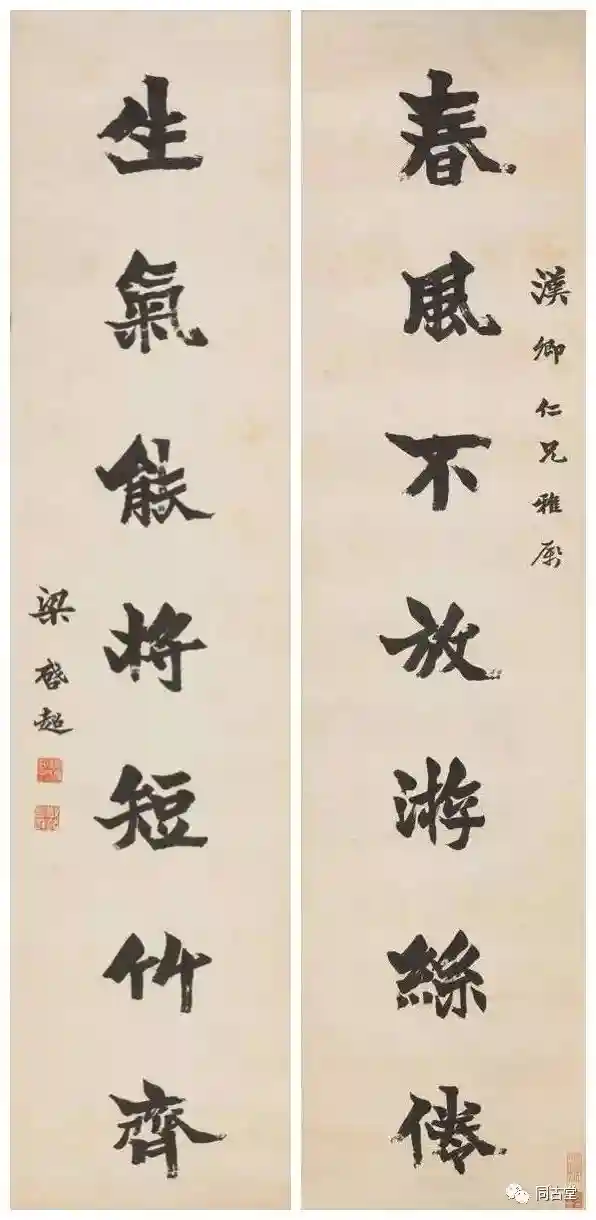 春風不放游絲倦
漢卿仁兄雅屬
生氣能將短竹齊
梁啓超
同古堂